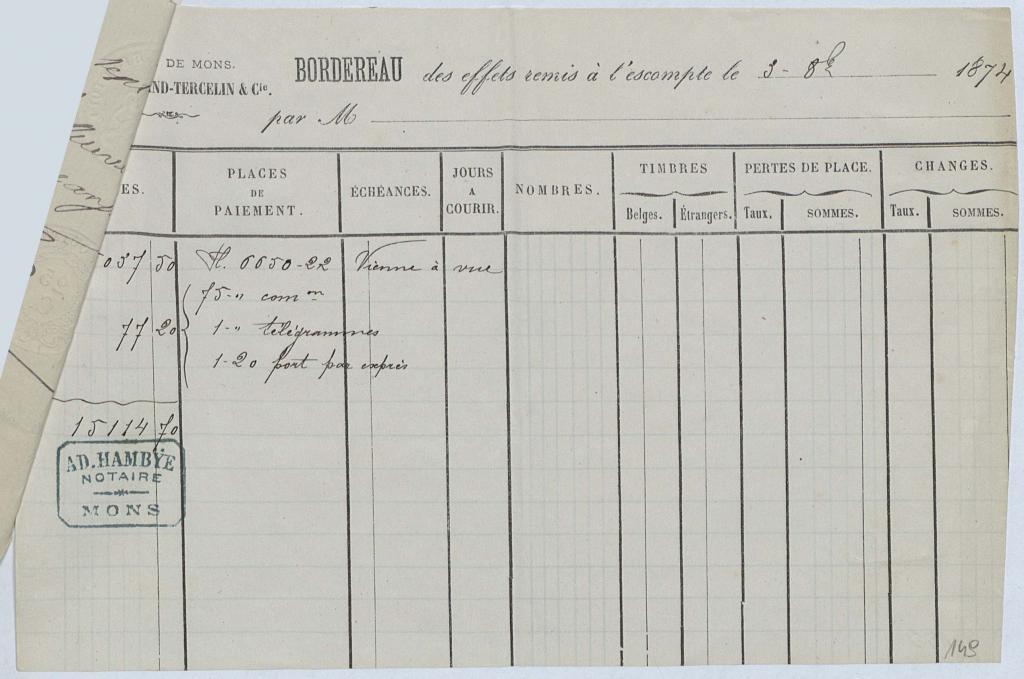 DE MONS.
ND-TERCELIN & Cie.
BORDEREAU des effets remis à l'escompte le 3 - 8bre 1874
par M
ES.
PLACES DE PAIEMENT.
ÉCHÉANCES.
JOURS A COURIR.
NOMBRES.
TIMBRES
Belges.
Étrangers.
PERTES DE PLACE.
Taux.
SOMMES.
CHANGES.
Taux.
SOMMES.
037 50 fl. 6650-22 Vienne à vue
75-" comon
77 20 1-" télégrammes
1-20 port par exprès
15114 70
AD. HAMBYE
NOTAIRE
MONS
149